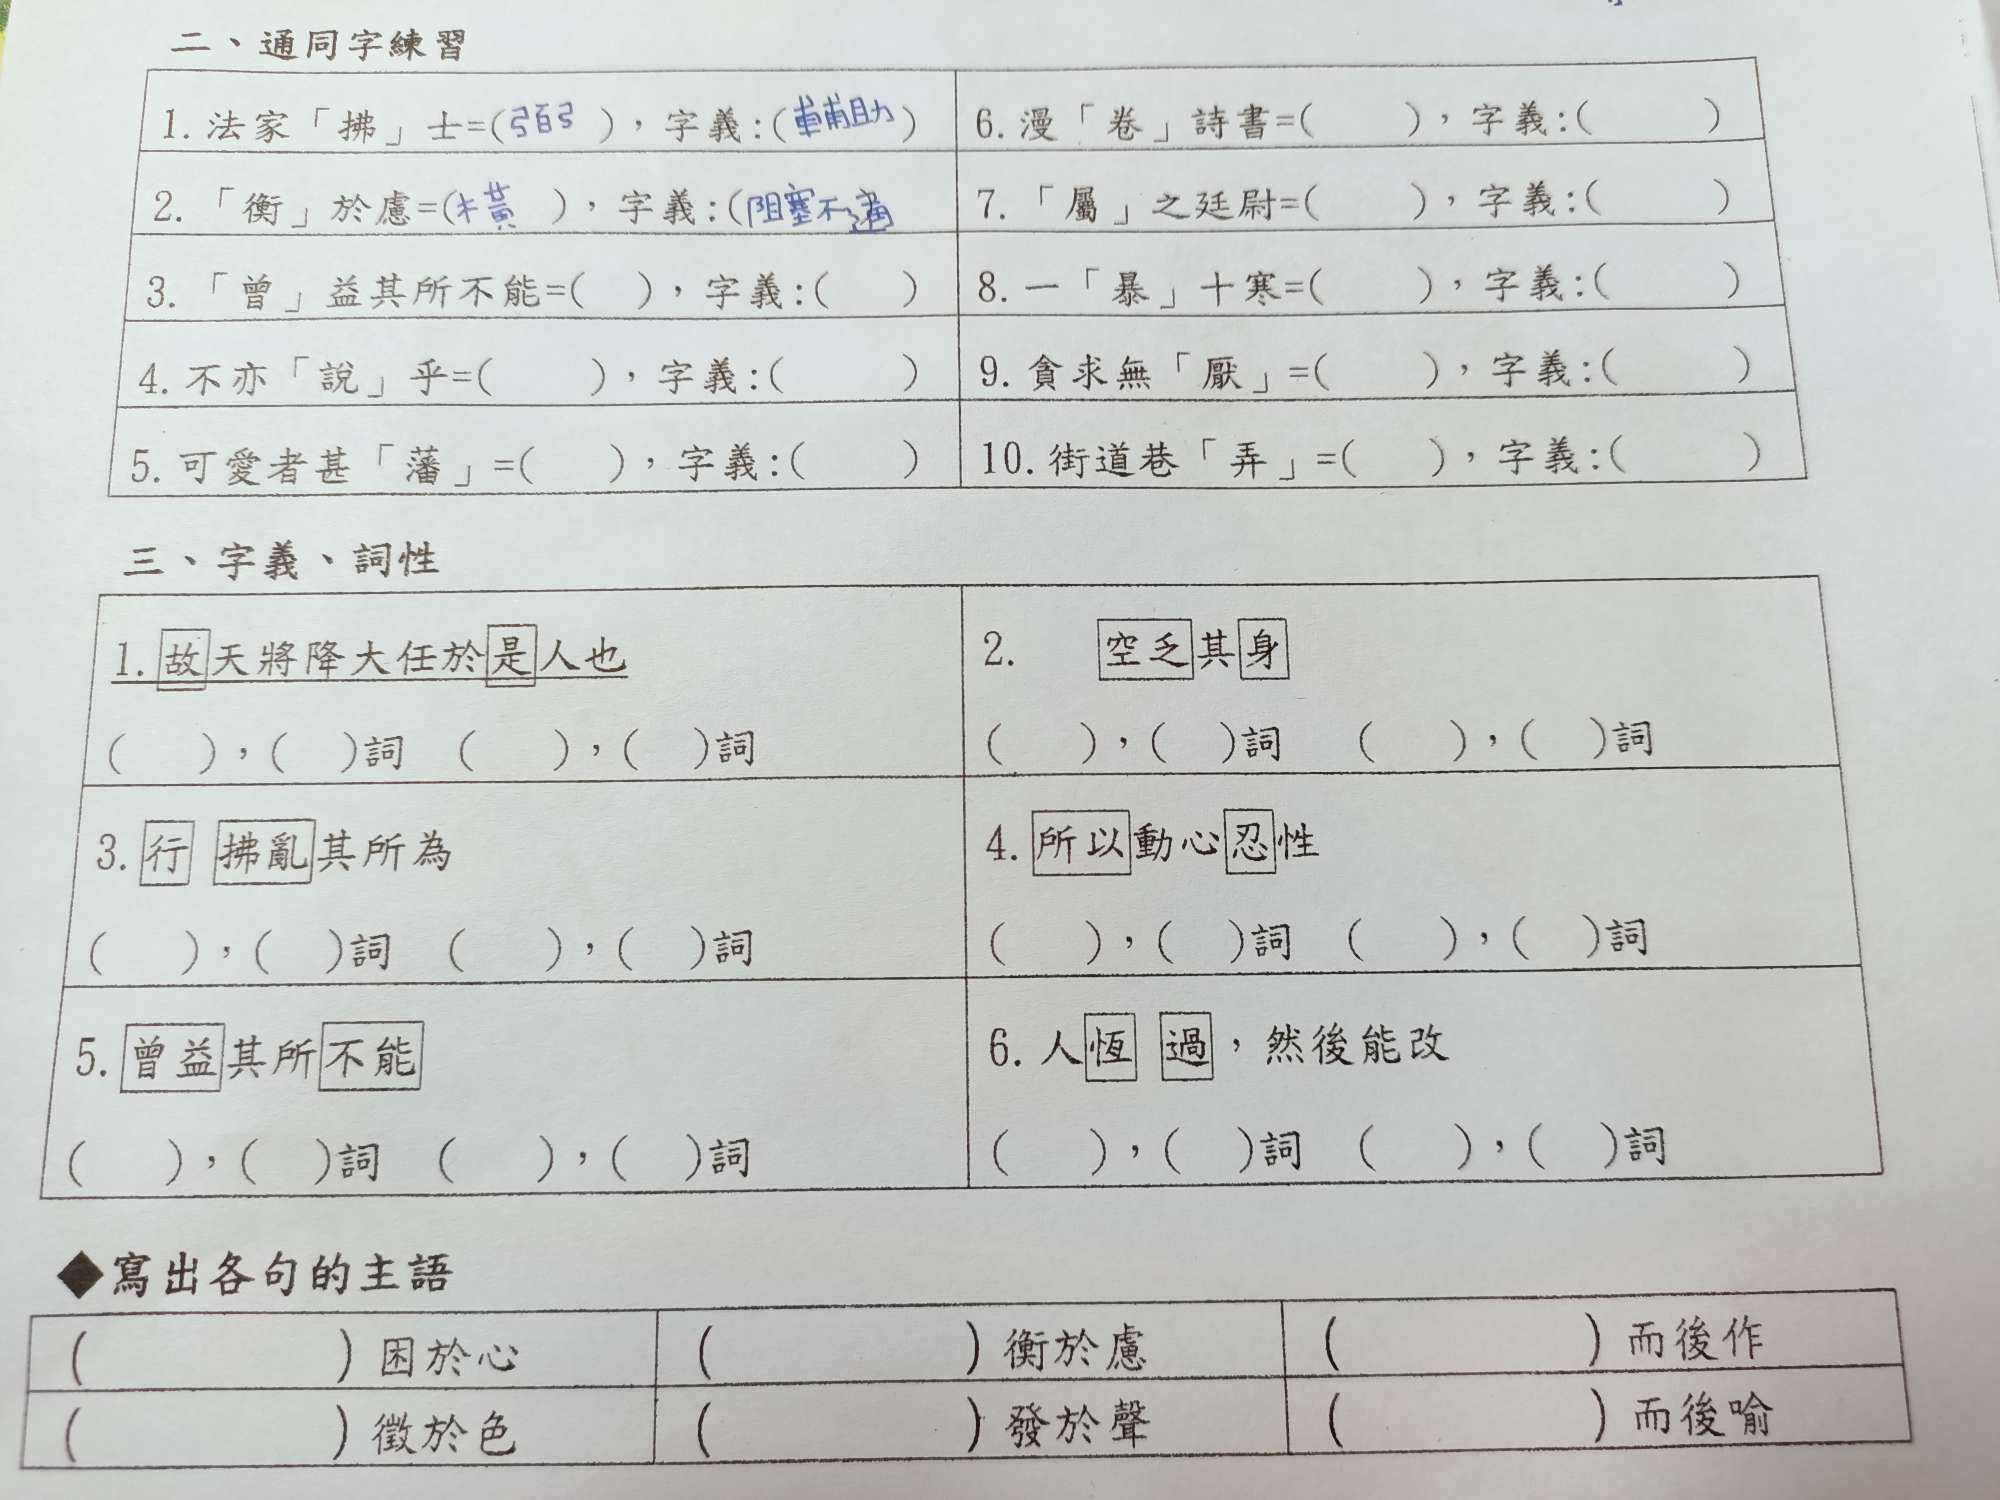 二、通同字練習
1. 法家「拂」士=(弼 ),字義:(輔助)
6. 漫「卷」詩書=( ),字義:( )
2. 「衡」於慮=(橫 ),字義:(阻塞不通
7. 「屬」之廷尉=( ),字義:( )
3. 「曾」益其所不能=( ),字義:( )
8. 一「暴」十寒=( ),字義:( )
4. 不亦「說」乎=( ),字義:( )
9. 貪求無「厭」=( ),字義:( )
5. 可愛者甚「藩」=( ),字義:( )
10. 街道巷「弄」=( ),字義:( )
三、字義、詞性
1. 故天將降大任於是人也
( ),( )詞 ( ),( )詞
2. 空乏其身
( ),( )詞 ( ),( )詞
3. 行 拂亂其所為
( ),( )詞 ( ),( )詞
4. 所以動心忍性
( ),( )詞 ( ),( )詞
5. 曾益其所不能
( ),( )詞 ( ),( )詞
6. 人恆 過,然後能改
( ),( )詞 ( ),( )詞
◆寫出各句的主語
( )困於心 ( )衡於慮 ( )而後作
( )徵於色 ( )發於聲 ( )而後喻